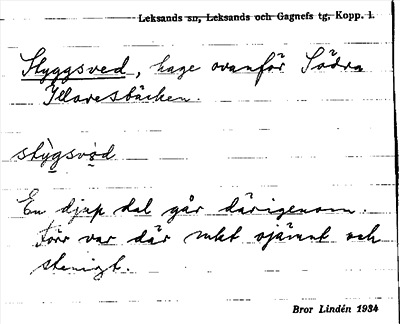 Leksands sn, Leksands och Gagnefs tg, Kopp. l.
Styggsved, hage ovanför Södra
stỳgsvod
En djup dal går därigenom.
Förr var där mkt ojämnt och
stenigt.
Bror Lindén 1934